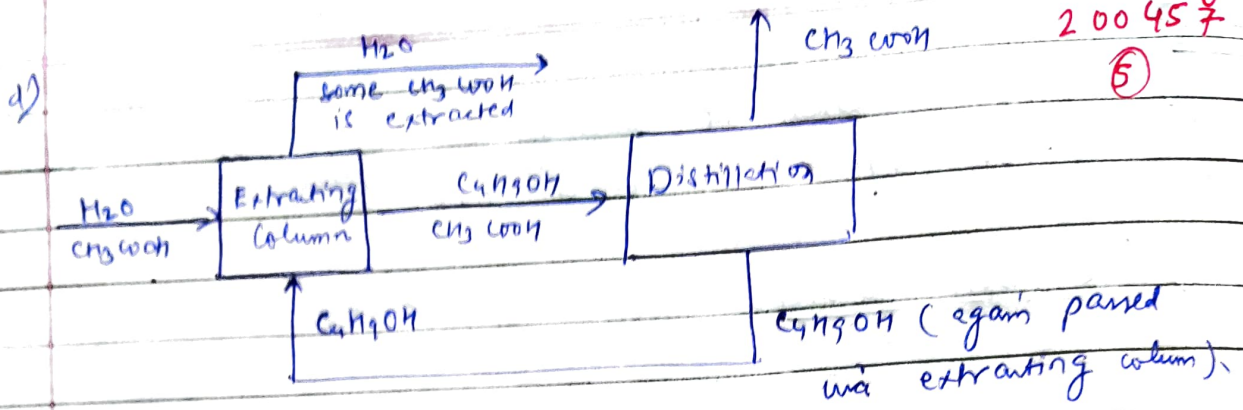 200457
5
d)
H2O
some CH3COOH
is extracted
CH3COOH
H2O
CH3COOH
Extrating
Column
C4H9OH
CH3COOH
Distillation
C4H9OH
C4H9OH (again passed
via extrating colum).